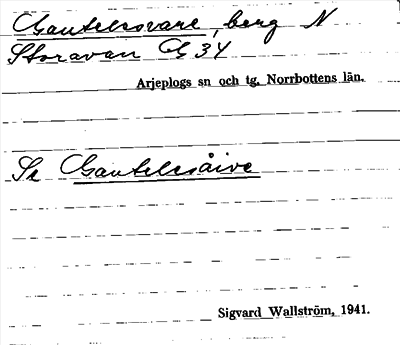 Gautelisvare, berg N
Storavan G 34
Arjeplogs sn och tg, Norrbottens län.
Se Gautelisåive
Sigvard Wallström, 1941.